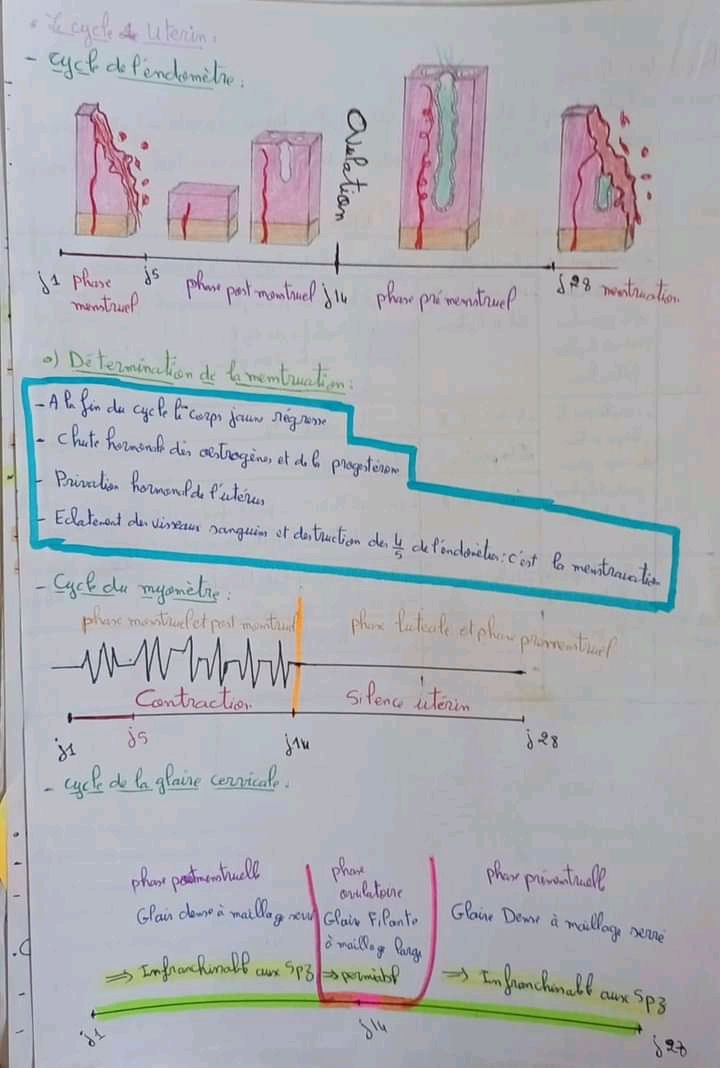 • Le cycle de Uterin :
- Cycle de l'endomètre :
Ovulation
j1 phase menstruel j5 phase post menstruel j14 phase prémenstruel j28 menstruation
o) Détermination de la menstruation :
- A la fin du cycle le corps jaune régresse
- Chute hormonale des œstrogènes et de la progestérone
- Privation hormonal de l'utérus
- Eclatement des visseaux sanguins et destruction des 4/5 de l'endomètre : c'est la menstrauation
- Cycle du myomètre :
phase menstruel et post menstruel phase lutéale et phase prémenstruel
Contraction Silence utérin
j1 j5 j14 j28
- Cycle de la glaire cervicale.
phase postmenstruell phase ovulatoire phase prémentruell
Glair dense à maillage serré Glaire Filante à maillage large Glaire Dense à maillage serré
⇒ Infranchinabl aux Spz ⇒ permiabl ⇒ Infranchinabl aux Spz
j1 j14 j28